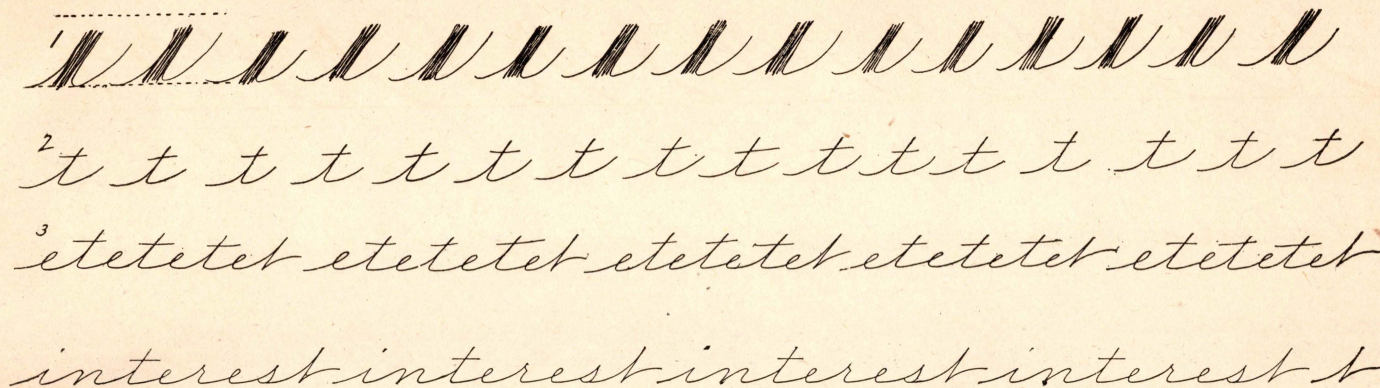 1
2 t t t t t t t t t t t t t t t t
3 etetetet etetetet etetetet etetetet etetetet
interest interest interest interest t